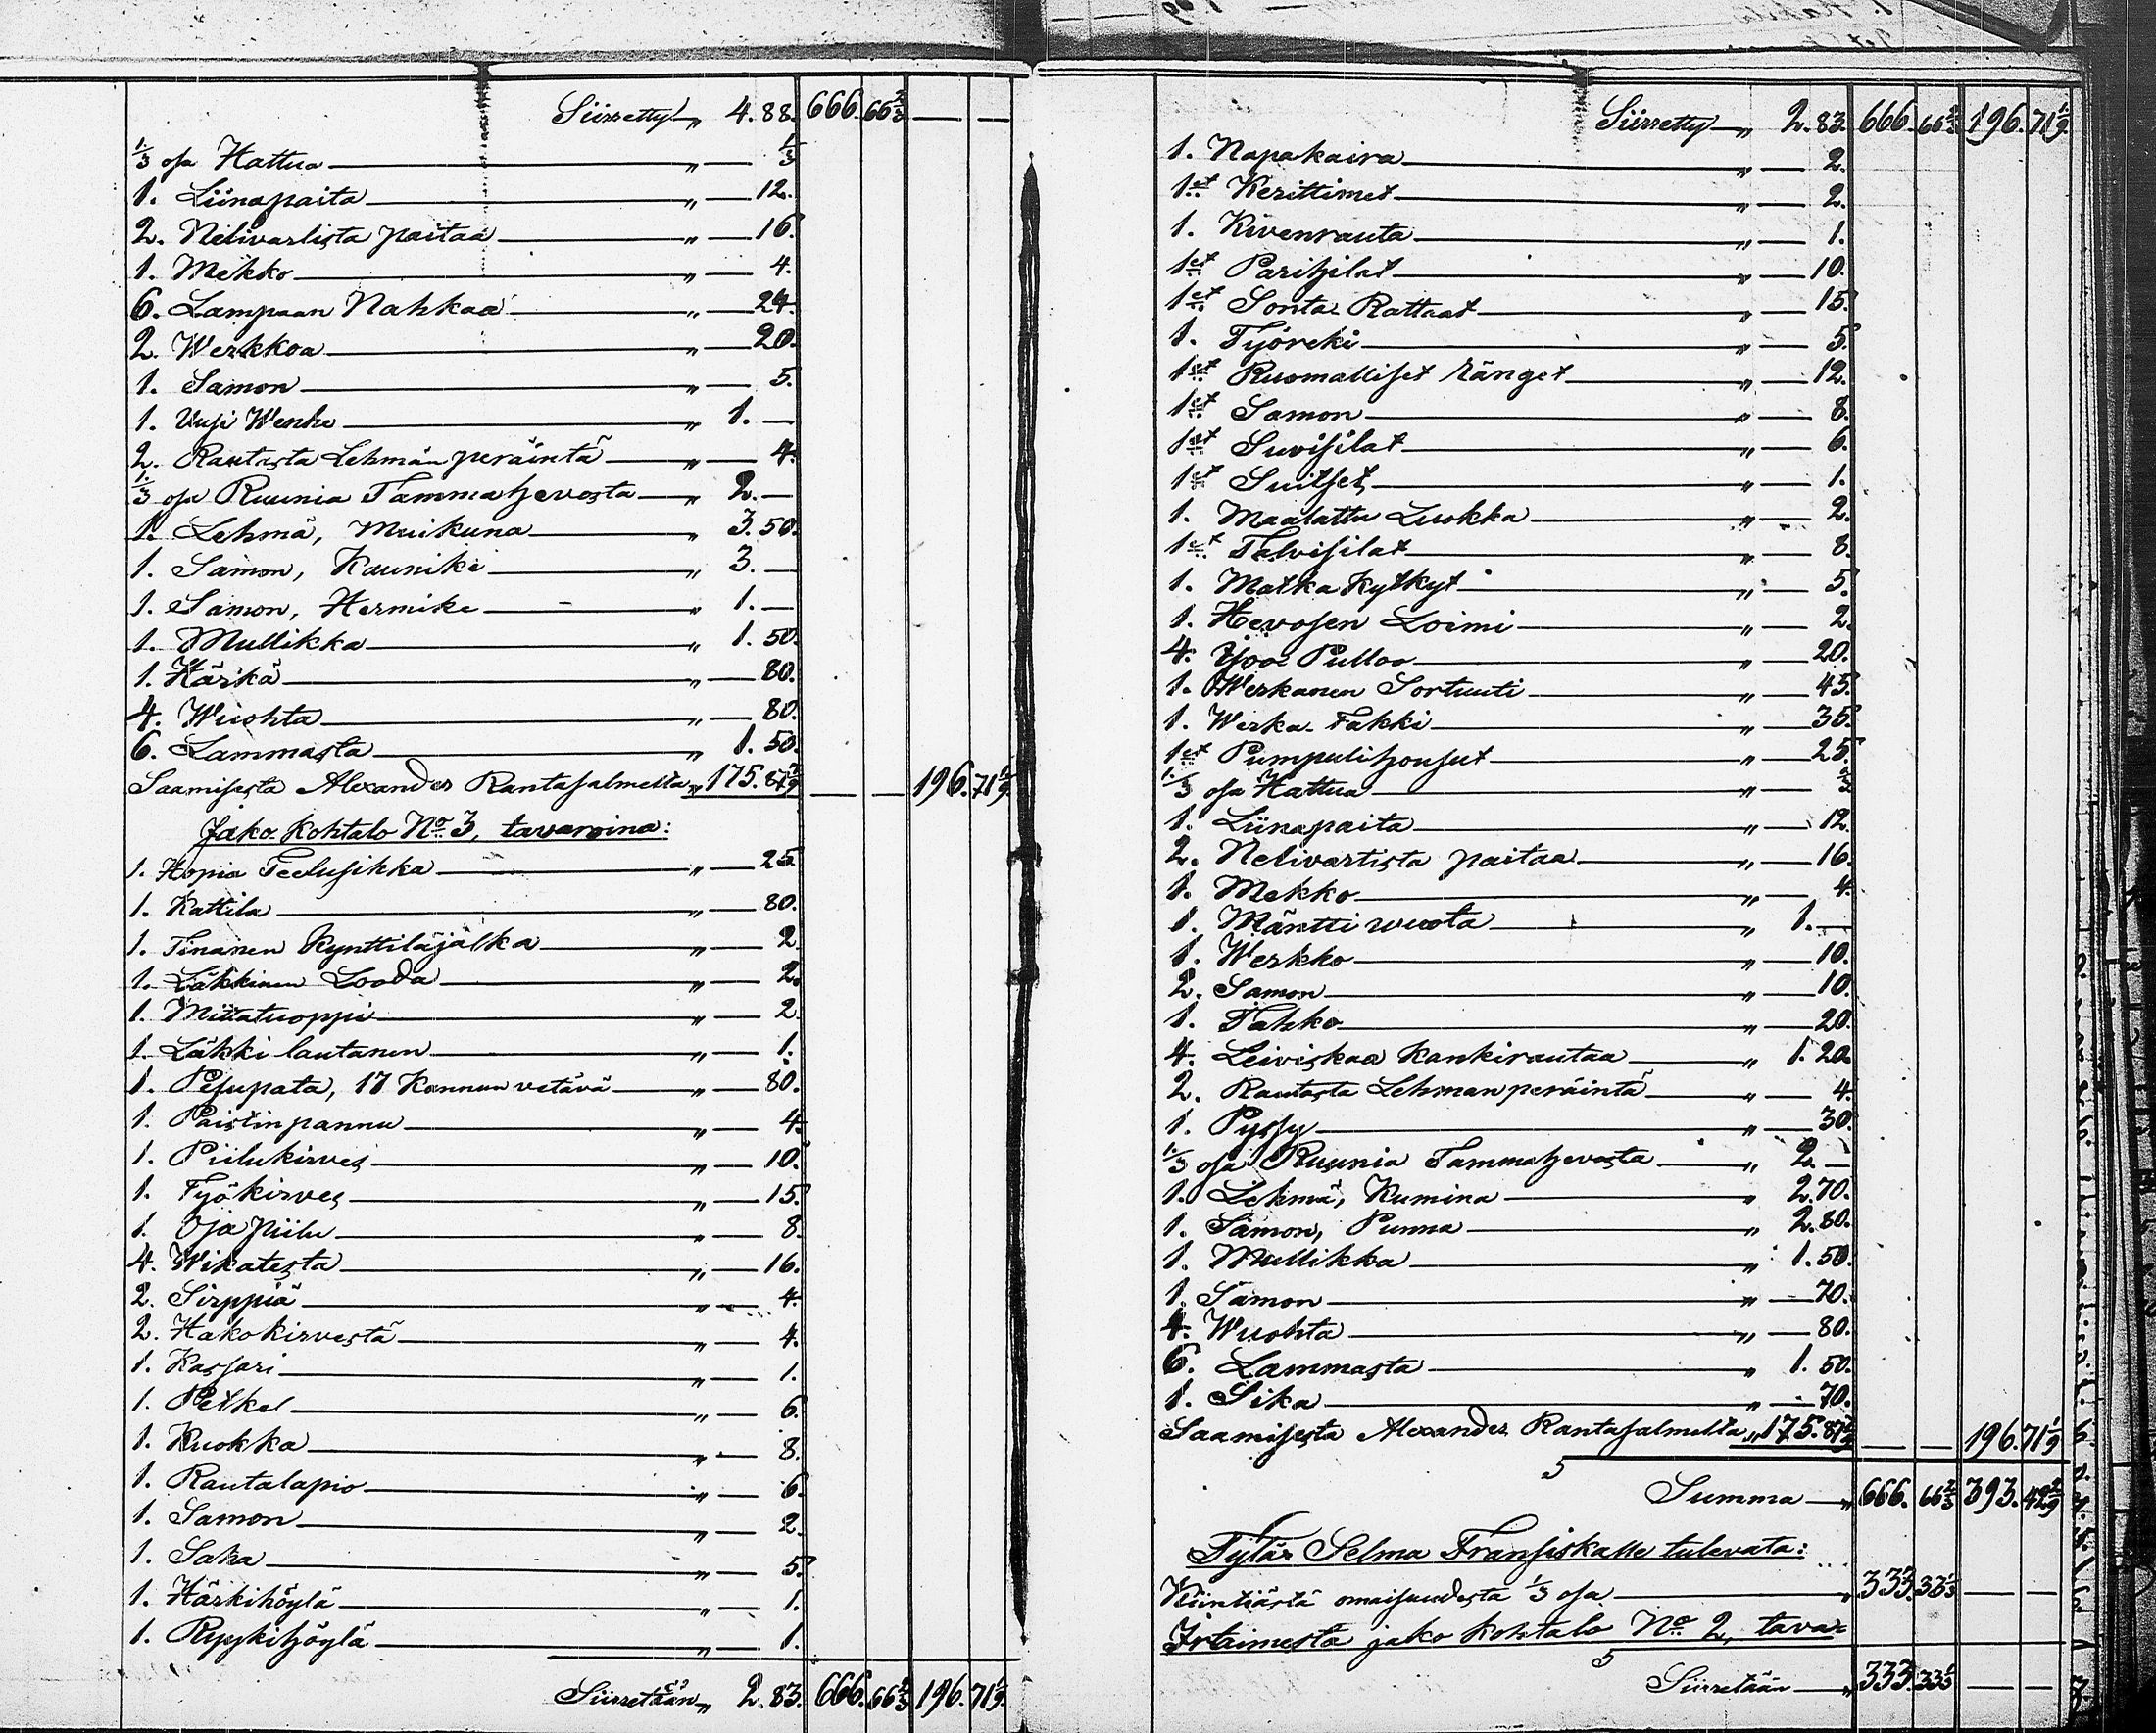 Siirretty „ 4.88. 666. 66⅔ — —
⅓ osa Hattua „ — ⅓
1. Liinapaita „ — 12.
2. Nelivartista paitaa „ — 16.
1. Mekko „ — 4.
6. Lampaan Nahkaa „ — 24.
2. Werkkoa „ — 20.
1. Samon „ — 5.
1. Uusi Wenhe „ 1. —
2. Rautasta Lehmän peräintä „ — 4.
⅓ osa Ruunia Tammahevosta „ 2. —
1. Lehmä, Muikuna „ 3.50.
1. Samon, Kauniki „ 3. —
1. Samon, Hermike „ 1. —
1. Mullikka „ 1.50.
1. Härkä „ — 80.
4. Wuohta „ — 80.
6. Lammasta „ 1.50.
Saamisesta Alexander Rantasalmelta „ 175. 87 7/9 — — 196. 71 1/9
Jako-Kohtalo No 3, tavaroina:
1. Hopia Teelusikka „ — 25.
1. Kattila „ — 80.
1. Tinanen Kynttiläjalka „ — 2.
1. Läkkinen Looda „ — 2.
1. Mittatuoppi „ — 2.
1. Läkki lautanen „ — 1.
1. Pesupata, 17 Kannun vetävä „ — 80.
1. Paistinpannu „ — 4.
1. Piilukirves „ — 10.
1. Työkirves „ — 15.
1. Oja piilu „ — 8.
4. Wikatesta „ — 16.
2. Sirppiä „ — 4.
2. Hakokirvestä „ — 4.
1. Kassari „ — 1.
1. Petkel „ — 6.
1. Kuokka „ — 8.
1. Rautalapio „ — 6.
1. Samon „ — 2.
1. Saha „ — 5.
1. Härkihöylä „ — 1.
1. Ryykihöylä „ — 1.
Siirretään „ 2.83. 666. 66⅔ 196. 71 1/9
Siirretty „ 2.83. 666. 66⅔ 196. 71 1/9
1. Napakaira „ — 2.
1et Kerittimet „ — 2.
1. Kivenrauta „ — 1.
1et Parihilat „ — 10.
1et Sonta-Rattaat „ — 15.
1. Työreki „ — 5.
1et Ruomalliset Länget „ — 12.
1et Samon „ — 8.
1et Suvisilat „ — 6.
1et Suitset „ — 1.
1. Maalattu Luokka „ — 2.
1et Talvisilat „ — 8.
1. Matka Kytkyt „ — 5.
1. Hevosen Loimi „ — 2.
4. Isoa Pulloa „ — 20.
1. Werkanen Sortuuti „ — 45.
1. Werka-Takki „ — 35.
1et Pumpulihousut „ — 25.
⅓ osa Hattua „ — ⅓
1. Liinapaita „ — 12.
2. Nelivartista paitaa „ — 16.
1. Mekko „ — 4.
1. Mäntti wuota „ 1. —
1. Werkko „ — 10.
2. Samon „ — 10.
1. Tahko „ — 20.
4. Leiviskaa Kankirautaa „ 1.20.
2. Rautasta Lehmanperäintä „ — 4.
1. Pyssy „ — 30.
⅓ osa Ruunia Tammahevosta „ 2. —
1. Lehmä, Kumina „ 2.70.
1. Samon, Punna „ 2.80.
1. Mullikka „ 1.50.
1. Samon „ — 70.
4. Wuohta „ — 80.
6. Lammasta „ 1.50.
1. Sika „ — 70.
Saamisesta Alexander Rantasalmelta „ 175. 87 — — 196. 71 1/9
Summa „ 666. 66⅔ 393. 42 2/9
Tytär Selma Fransiskalle tulevata:
Kiintiästä omaisuudesta ⅓ osa „ 333. 33⅓ — —
Irtaimesta jako kohtalo No 2, tavar
Siirretään „ 333. 33⅓ — —